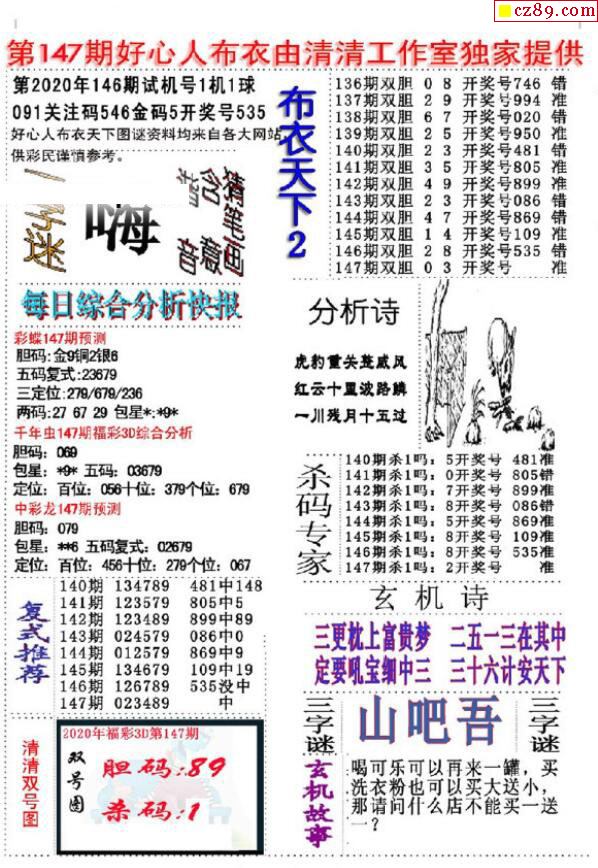 cz89.com
第147期好心人布衣由清清工作室独家提供
第2020年146期试机号1机1球
091关注码546金码5开奖号535
好心人布衣天下图谜资料均来自各大网站
供彩民谨慎参考。
字迷
嗨
猜笔画
含意
音
布衣天下2
136期双胆 0 8 开奖号746 错
137期双胆 2 9 开奖号994 准
138期双胆 6 7 开奖号020 错
139期双胆 2 5 开奖号950 准
140期双胆 2 3 开奖号481 错
141期双胆 3 5 开奖号805 准
142期双胆 4 9 开奖号899 准
143期双胆 2 3 开奖号086 错
144期双胆 4 7 开奖号869 错
145期双胆 1 4 开奖号109 准
146期双胆 2 8 开奖号535 错
147期双胆 0 3 开奖号 准
每日综合分析快报
彩蝶147期预测
胆码:金9铜2银6
五码复式:23679
三定位:279/679/236
两码:27 67 29 包星*:*9*
千年虫147期福彩3D综合分析
胆码: 069
包星: *9* 五码: 03679
定位: 百位: 056十位: 379个位: 679
中彩龙147期预测
胆码: 079
包星: **6 五码复式: 02679
定位: 百位: 456十位: 279个位: 067
分析诗
虎豹重关莛威风
红云十里波路鳞
一川残月十五过
杀码专家
140期杀1吗: 5开奖号 481准
141期杀1吗: 0开奖号 805错
142期杀1吗: 7开奖号 899准
143期杀1吗: 8开奖号 086错
144期杀1吗: 5开奖号 869准
145期杀1吗: 8开奖号 109准
146期杀1吗: 8开奖号 535准
147期杀1吗: 2开奖号 准
复式推荐
140期 134789 481中148
141期 123579 805中5
142期 123489 899中89
143期 024579 086中0
144期 012579 869中9
145期 134679 109中19
146期 126789 535没中
147期 023489 中
玄机诗
三更枕上富贵梦 二五一三在其中
定要吼宝细中三 三十六计安天下
三字谜
山吧吾
三字谜
清清双号图
2020年福彩3D第147期
双号图
胆码:89
杀码:1
玄机故事
喝可乐可以再来一罐，买
洗衣粉也可以买大送小，
那请问什么店不能买一送
一？